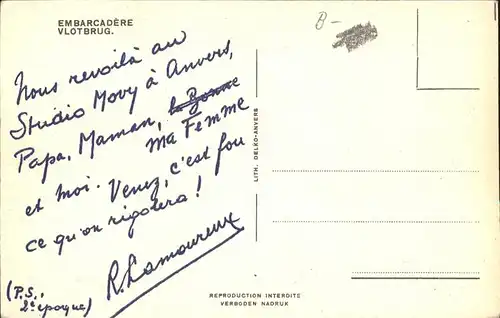 EMBARCADÈRE
VLOTBRUG.
B-
Nous revoilà au
Studio Movy à Anvers,
Papa, Maman, la Bonne
ma Femme
et moi. Venez, c'est fou
ce qu'on rigolera!
R. Lamoureux
(P.S.,
2e époque)
LITH. DELKO-ANVERS
REPRODUCTION INTERDITE
VERBODEN NADRUK